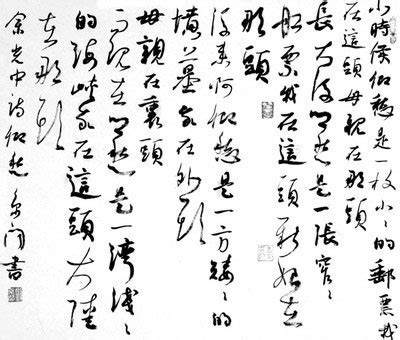 小時候鄉愁是一枚小〻的郵票我
在這頭母親在那頭
長大後鄉愁是一張窄〻
船票我在這頭新娘在
那頭
後來啊鄉愁是一方矮〻的
墳墓我在外頭
母親在裏頭
而現在鄉愁是一灣淺〻
的海峽我在這頭大陸
在那頭
余光中詩鄉愁 書